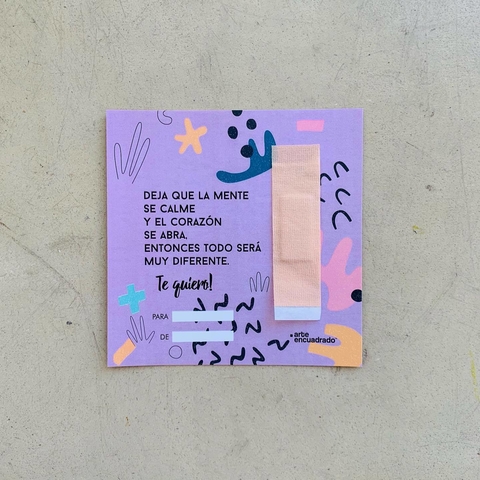 DEJA QUE LA MENTE
SE CALME
Y EL CORAZÓN
SE ABRA.
ENTONCES TODO SERÁ
MUY DIFERENTE.
Te quiero!
PARA
DE
arte
encuadrado